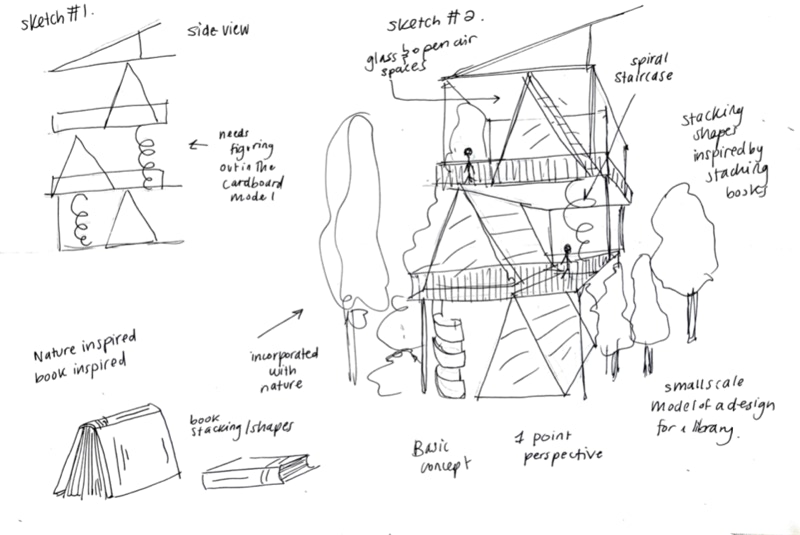 sketch #1.
side view
needs
figuring
out in the
cardboard
model
sketch #2.
glass & open air
spaces
spiral
staircase
stacking
shapes
inspired by
stacking
books
Nature inspired
book inspired
incorporated
with
nature
book
stacking/shapes
Basic
concept
1 point
perspective
small scale
model of a design
for a library.